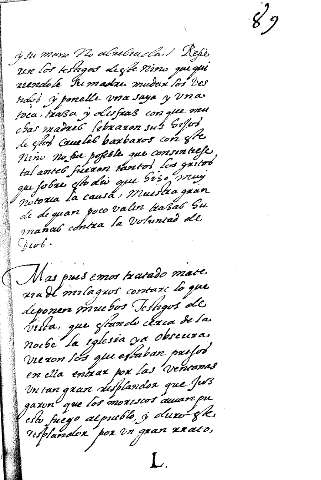 89
y su mano No abrebiusla. Refie
ren los testigos deste Niño que qui
riendole su madre mudar los ves
tidos y ponelle una saya y una
toca, traza y disfras con que mu
chas madres libraron sus hijos
destos crueles barbaros con este
Niño no fue posible que consintiese
tal antes fueron tantos los gritos
que sobre esto dio que hizo muy
notoria la causa, Muestra gran
de de quan poco valen trazas hu
manas contra la Voluntad de
Dios.
Mas pues emos tratado mate
ria de milagros contare lo que
deponen muchos Testigos de
vista, que estando cerca de la
noche la Iglesia ya obscura,
vieron los que estaban presos
en ella entrar por las ventanas
un tan gran resplandor que juz
garon que los moriscos avian pu
esto fuego al pueblo, y duro este
resplandor por un gran rrato,
L.